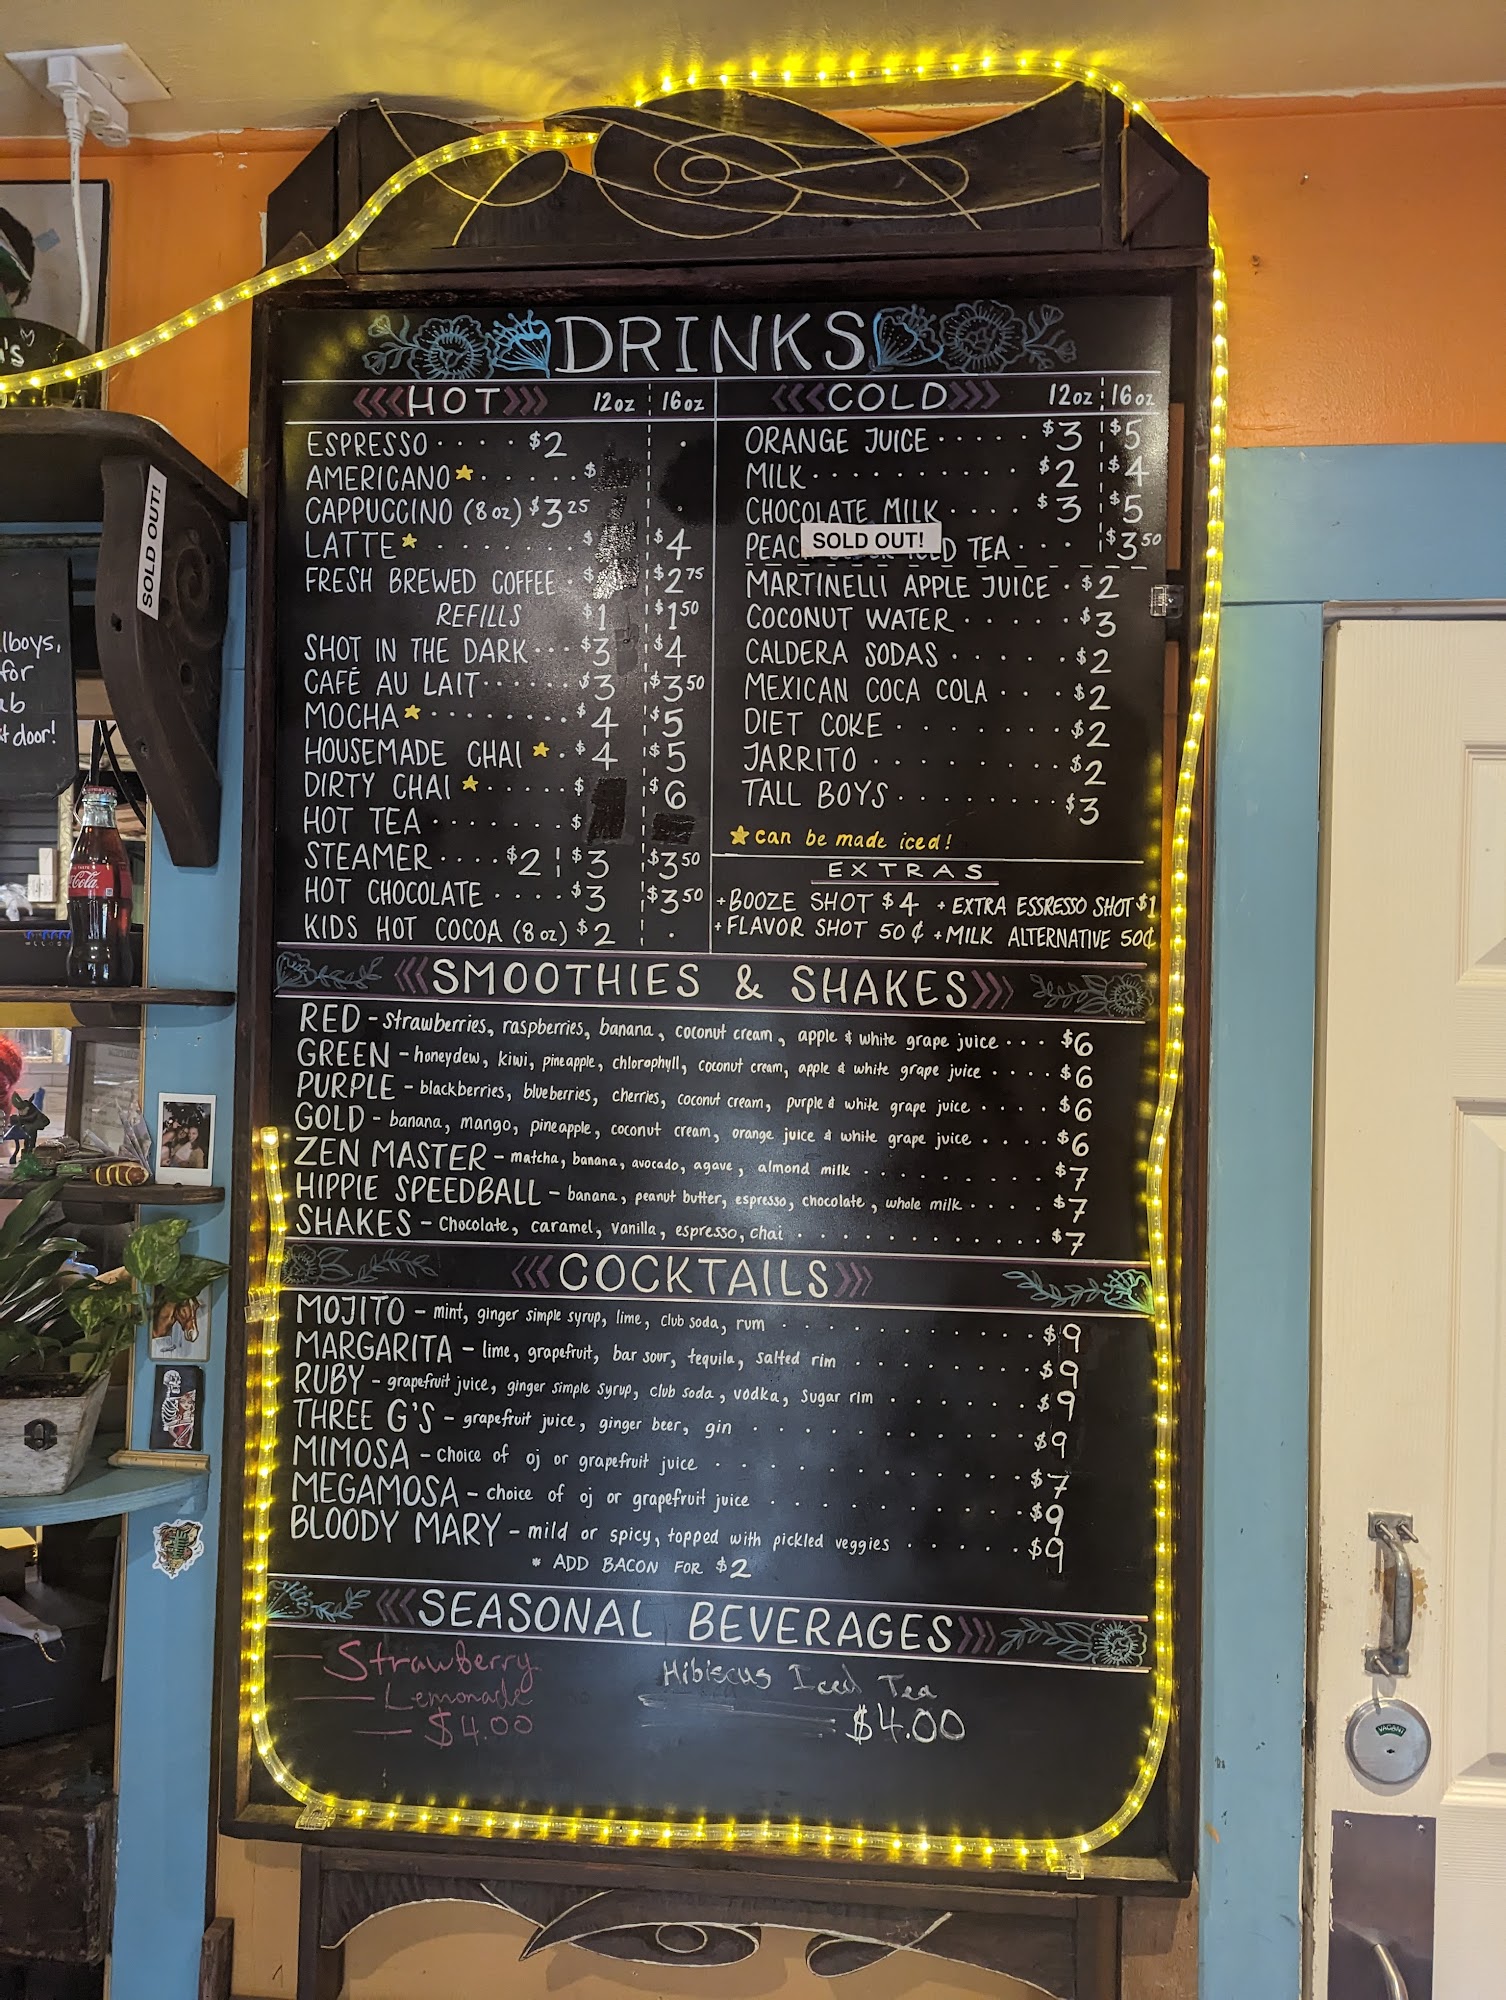 DRINKS
HOT 12oz 16oz
ESPRESSO.... $2
AMERICANO★..... $
CAPPUCCINO (8oz) $3 25
LATTE★....... $ $4
FRESH BREWED COFFEE. $ $2 75
REFILLS $1 $1 50
SHOT IN THE DARK... $3 $4
CAFÉ AU LAIT...... $3 $3 50
MOCHA★........ $4 $5
HOUSEMADE CHAI★. $4 $5
DIRTY CHAI★..... $ $6
HOT TEA....... $
STEAMER.... $2 $3 $3 50
HOT CHOCOLATE.... $3 $3 50
KIDS HOT COCOA (8oz) $2
COLD 12oz 16oz
ORANGE JUICE..... $3 $5
MILK........... $2 $4
CHOCOLATE MILK.... $3 $5
SOLD OUT!
TEA... $3 50
MARTINELLI APPLE JUICE. $2
COCONUT WATER..... $3
CALDERA SODAS..... $2
MEXICAN COCA COLA... $2
DIET COKE........ $2
JARRITO......... $2
TALL BOYS........ $3
★can be made iced!
EXTRAS
+BOOZE SHOT $4 +EXTRA ESSRESSO SHOT $1
+FLAVOR SHOT 50¢ +MILK ALTERNATIVE 50¢
SMOOTHIES & SHAKES
RED - strawberries, raspberries, banana, coconut cream, apple & white grape juice... $6
GREEN - honeydew, kiwi, pineapple, chlorophyll, coconut cream, apple & white grape juice.... $6
PURPLE - blackberries, blueberries, cherries, coconut cream, purple & white grape juice.... $6
GOLD - banana, mango, pineapple, coconut cream, orange juice & white grape juice.... $6
ZEN MASTER - matcha, banana, avocado, agave, almond milk......... $7
HIPPIE SPEEDBALL - banana, peanut butter, espresso, chocolate, whole milk.... $7
SHAKES - Chocolate, caramel, vanilla, espresso, chai............ $7
COCKTAILS
MOJITO - mint, ginger simple syrup, lime, club soda, rum........... $9
MARGARITA - lime, grapefruit, bar sour, tequila, salted rim......... $9
RUBY - grapefruit juice, ginger simple syrup, club soda, vodka, sugar rim....... $9
THREE G'S - grapefruit juice, ginger beer, gin............ $9
MIMOSA - Choice of oj or grapefruit juice............ $7
MEGAMOSA - choice of oj or grapefruit juice........... $9
BLOODY MARY - mild or spicy, topped with pickled veggies..... $9
* ADD BACON FOR $2
SEASONAL BEVERAGES
Strawberry
Lemonade
$4.00
Hibiscus Iced Tea
$4.00
SOLD OUT!
lboys,
for
ab
t door!
Coca-Cola
VACANT